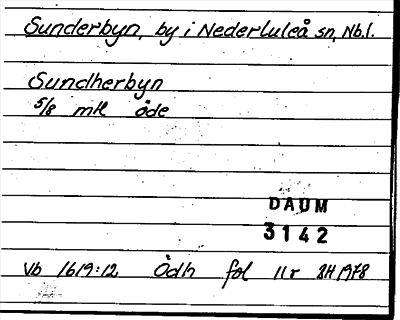 Sunderbyn, by i Nederluleå sn, Nb.l.
Sundherbyn
5/8 mtl öde
DAUM
3142
Vb 1619:12 Ödh fol 11r BH 1978